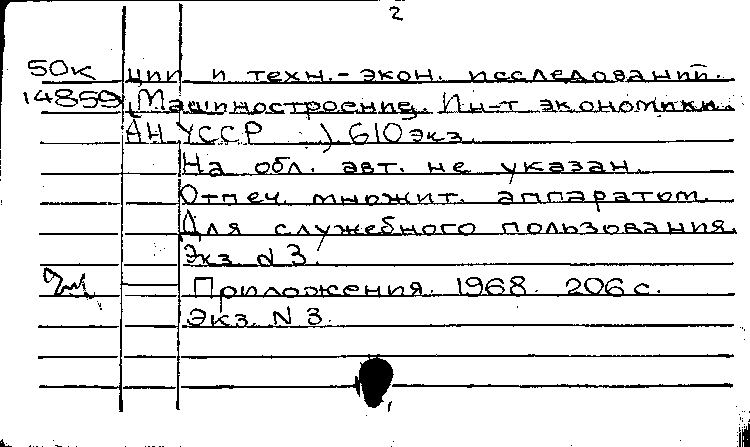 2
50к ции и техн.-экон. исследований.
14859 Машиностроение. Ин-т экономики.
АН УССР ) 610 экз.
На обл. авт. не указан.
Отпеч. множит. аппаратом.
Для служебного пользования.
Экз. N 3.
Приложения. 1968. 206 с.
Экз. N 3.